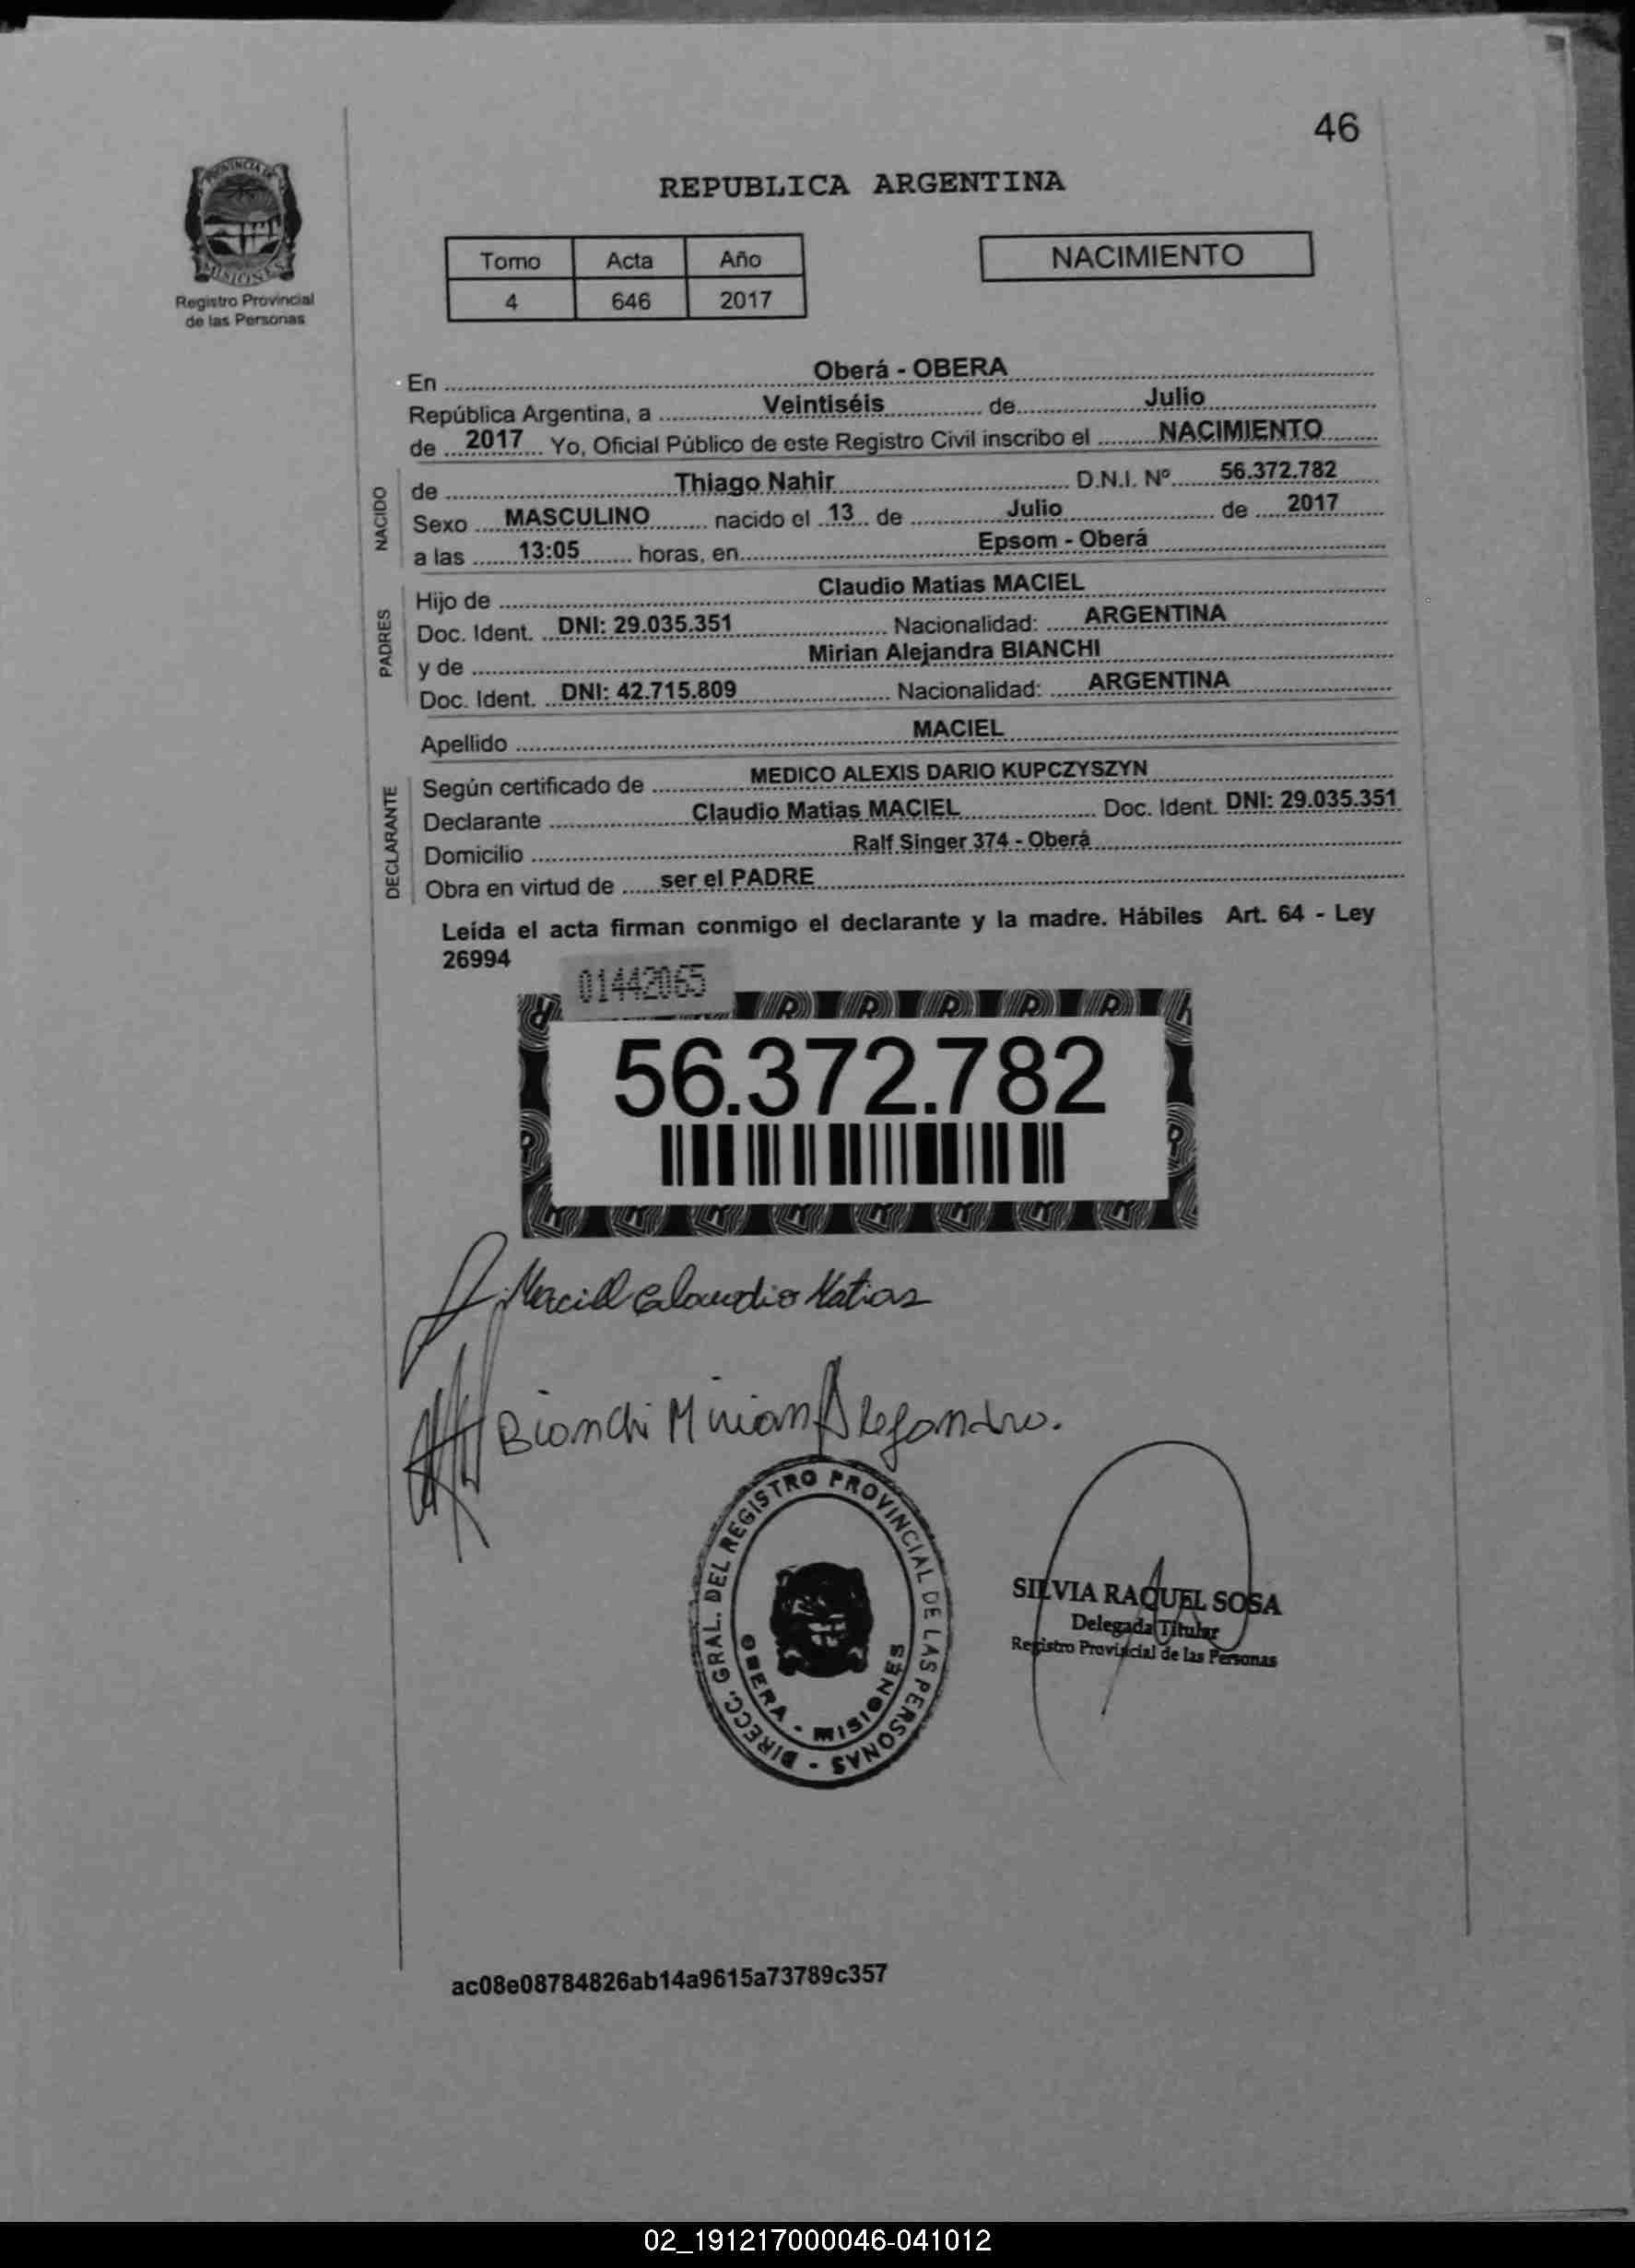 46
PROVINCIA DE
MISIONES
Registro Provincial
de las Personas
REPUBLICA ARGENTINA
Tomo Acta Año
4 646 2017
NACIMIENTO
En Oberá - OBERA
República Argentina, a Veintiséis de Julio
de 2017 Yo, Oficial Público de este Registro Civil inscribo el NACIMIENTO
NACIDO
de Thiago Nahir D.N.I. Nº 56.372.782
Sexo MASCULINO nacido el 13 de Julio de 2017
a las 13:05 horas, en Epsom - Oberá
PADRES
Hijo de Claudio Matias MACIEL
Doc. Ident. DNI: 29.035.351 Nacionalidad: ARGENTINA
y de Mirian Alejandra BIANCHI
Doc. Ident. DNI: 42.715.809 Nacionalidad: ARGENTINA
Apellido MACIEL
DECLARANTE
Según certificado de MEDICO ALEXIS DARIO KUPCZYSZYN
Declarante Claudio Matias MACIEL Doc. Ident. DNI: 29.035.351
Domicilio Ralf Singer 374 - Oberá
Obra en virtud de ser el PADRE
Leída el acta firman conmigo el declarante y la madre. Hábiles Art. 64 - Ley
26994
01442065
56.372.782
Maciel Claudio Matias
Bianchi Mirian Alejandra.
DIRECC. GRAL. DEL REGISTRO PROVINCIAL DE LAS PERSONAS -
OBERA - MISIONES
SILVIA RAQUEL SOSA
Delegada Titular
Registro Provincial de las Personas
ac08e08784826ab14a9615a73789c357
02_191217000046-041012